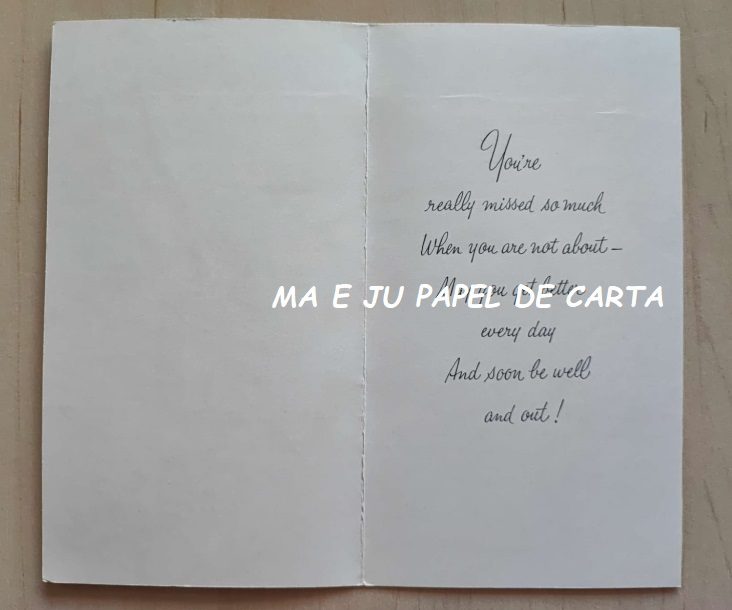 You're
really missed so much
When you are not about —
May you get better
every day
And soon be well
and out!
MA E JU PAPEL DE CARTA